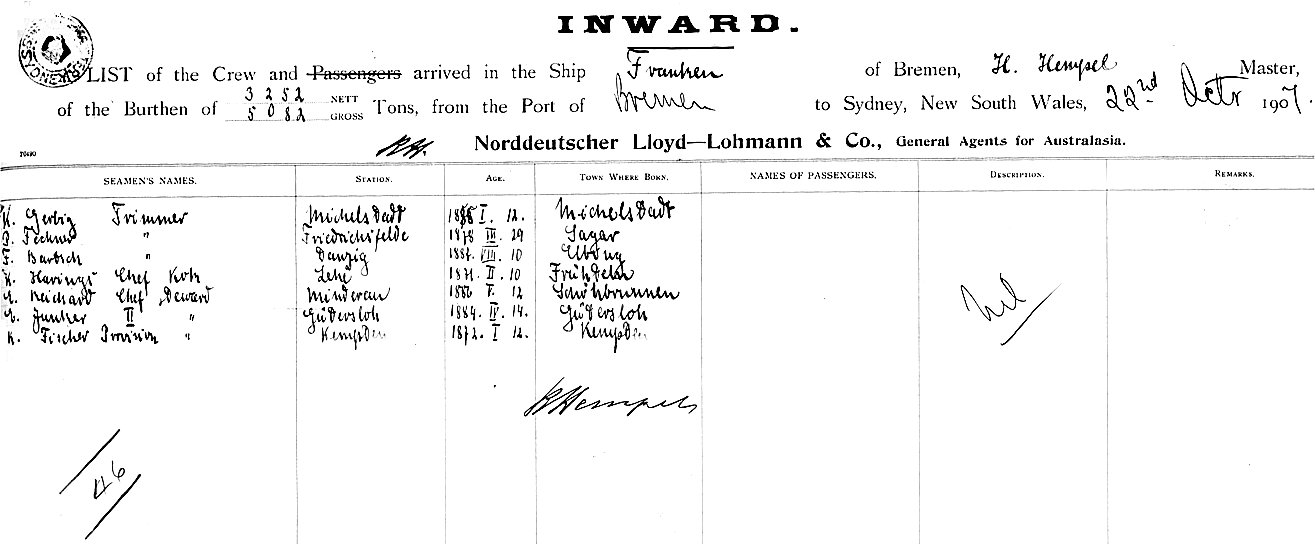 INWARD.
LIST of the Crew and Passengers arrived in the Ship Franken of Bremen, H. Hempel Master,
of the Burthen of 3252 NETT 5082 GROSS Tons, from the Port of Bremen to Sydney, New South Wales, 22nd Octr 1907.
Norddeutscher Lloyd—Lohmann & Co., General Agents for Australasia.
SEAMEN'S NAMES. STATION. AGE. TOWN WHERE BORN. NAMES OF PASSENGERS. DESCRIPTION. REMARKS.
K. Gerbig Trimmer Michelsdadt I. 12. Michelsdadt
" Friedrichsfelde 1878 III. 29 Sagar
F. Bartsch " Danzig 1887. VIII. 10 Elbing
K. Havings Chef Koch Lehe 1871. II. 10
Reichard Chef Steward Minderau 1880 V. 12 Schönbrunnen
Junker II " Güdersloh 1884. IV. 14. Güdersloh
K. Fischer Provision " Kempden 1872. I 12. Kempden
nil
H Hempel
46